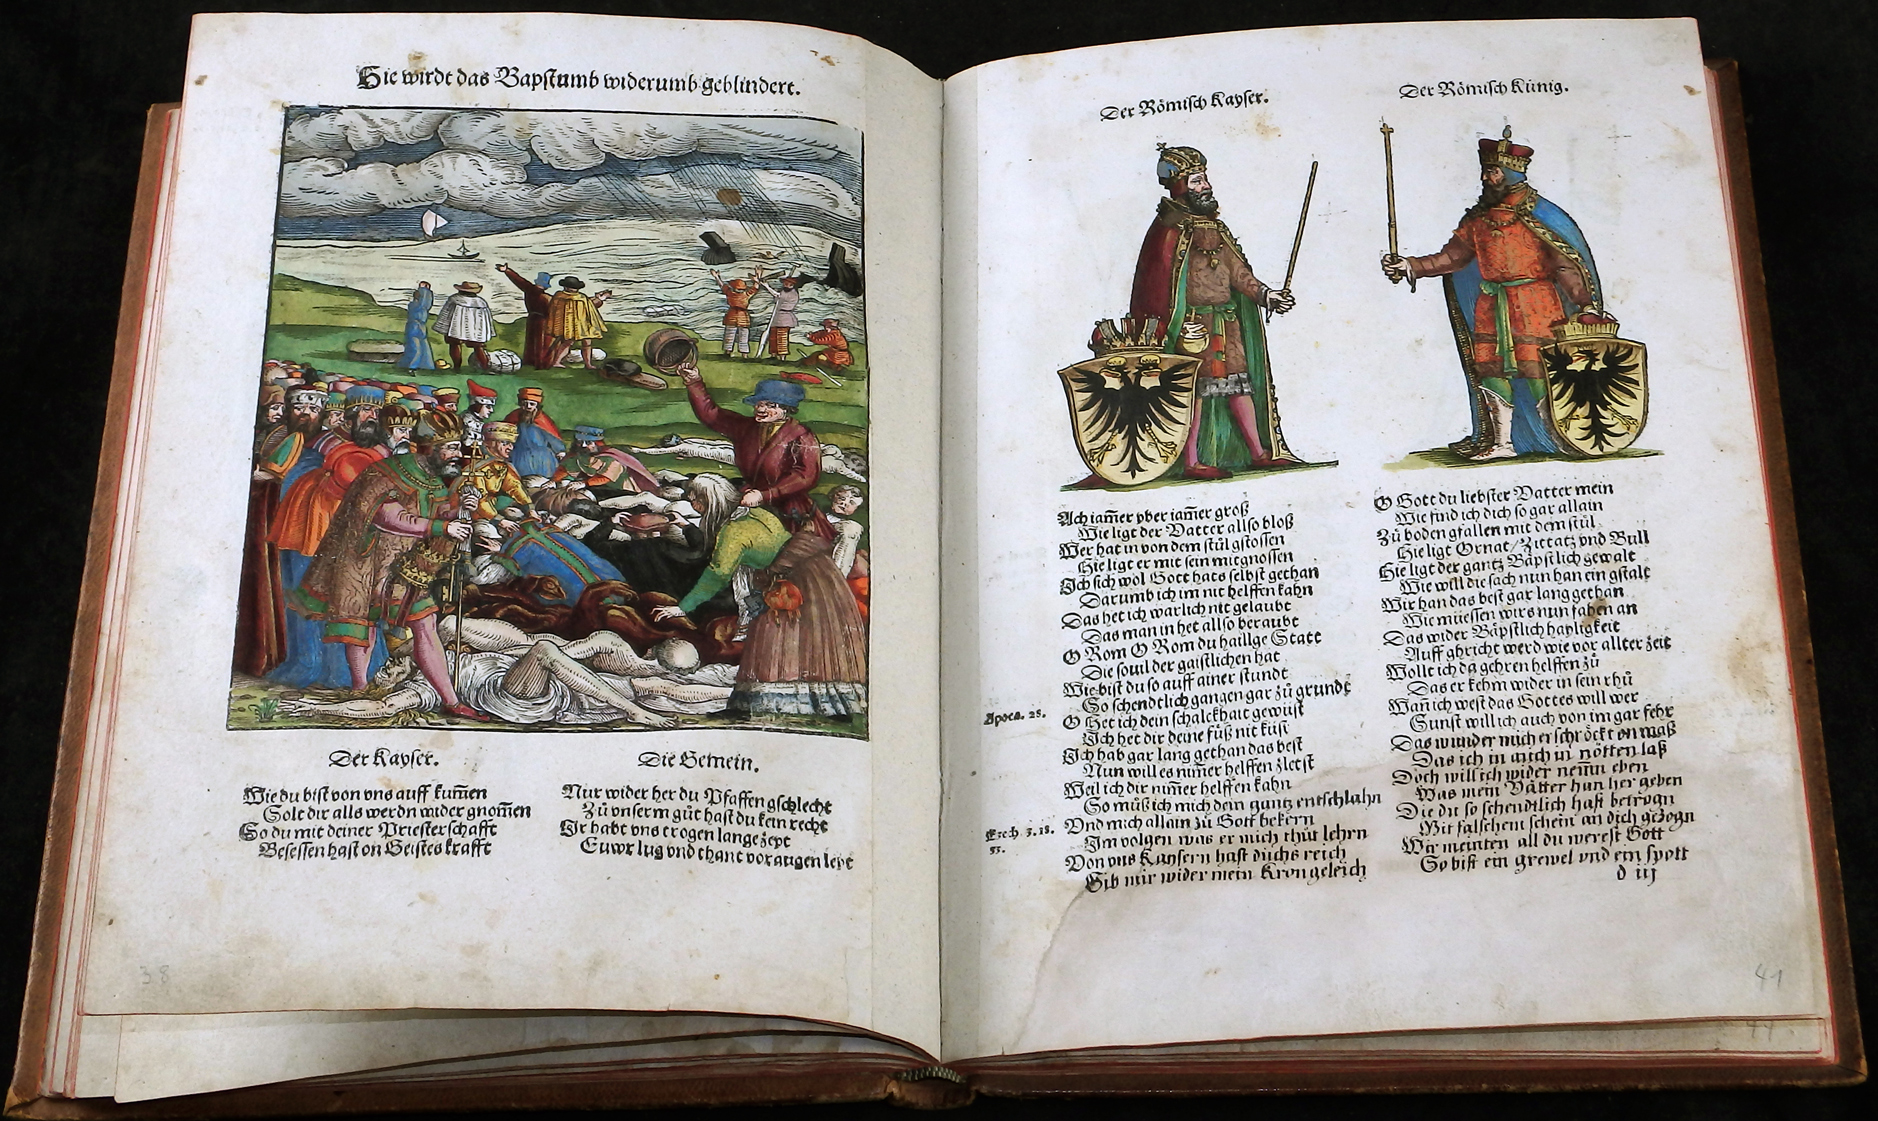 Hie wirdt das Bapstumb widerumb geblindert.
Der Kayser.
Wie du bist von vns auff kum̃en
Solt dir alls werdn wider gnom̃en
So du mit deiner Priesterschafft
Besessen hast on Geistes krafft
Die Gemein.
Nur wider her du Pfaffen gschlecht
Zů vnserm gůt hast du kein recht
Ir habt vns trogen lange zeyt
Euwr lug vnd thant vor augen leyt
38
Der Römisch Kayser.
Ach iam̃er vber iam̃er groß
Wie ligt der Vatter allso bloß
Wer hat in von dem stůl gstossen
Hie ligt er mit sein mitgnossen
Ich sich wol Gott hats selbst gethan
Darumb ich im nit helffen kahn
Das het ich warlich nit gelaubt
Das man in het allso beraubt
O Rom O Rom du haillge Statt
Die souil der gaistlichen hat
Wie bist du so auff ainer stundt
So schendtlich gangen gar zů grundt
Apoca. 28.
O Het ich dein schalckhait gewüst
Ich het dir deine füß nit küst
Ich hab gar lang gethan das best
Nun will es nim̃er helffen zletst
Weil ich dir nim̃er helffen kahn
So můß ich mich dein gantz entschlahn
Ezech. 3. 18.
33.
Vnd mich allain zů Gott bekern
Im volgen was er mich thůt lehrn
Von vns Kaysern hast düchs reich
Gib mir wider mein Kron geleich
Der Römisch Künig.
O Gott du liebster Vatter mein
Wie find ich dich so gar allain
Zů boden gfallen mit dem stůl
Hie ligt Ornat / Zittatz vnd Bull
Hie ligt der gantz Bäpstlich gewalt
Wie will die sach nun han ein gstalt
Wir han das best gar lang gethan
Wie müessen wirs nun fahen an
Das wider Bäpstlich hayligkeit
Auff ghricht werd wie vor allter zeit
Wollt ich da gehren helffen zů
Das er kehm wider in sein rhů
Wan̄ ich west das Gottes will wer
Sunst will ich auch von im gar fehr
Das wunder mich erschröckt on maß
Das ich in auch in nötten laß
Doch will ich wider nem̃n eben
Was mein Vätter han her geben
Die du so schendtlich hast betrogn
Mit falschem schein an dich gezogn
Wir meinten all du werest Gott
So bist ein grewel vnd ein spott
d iij
41